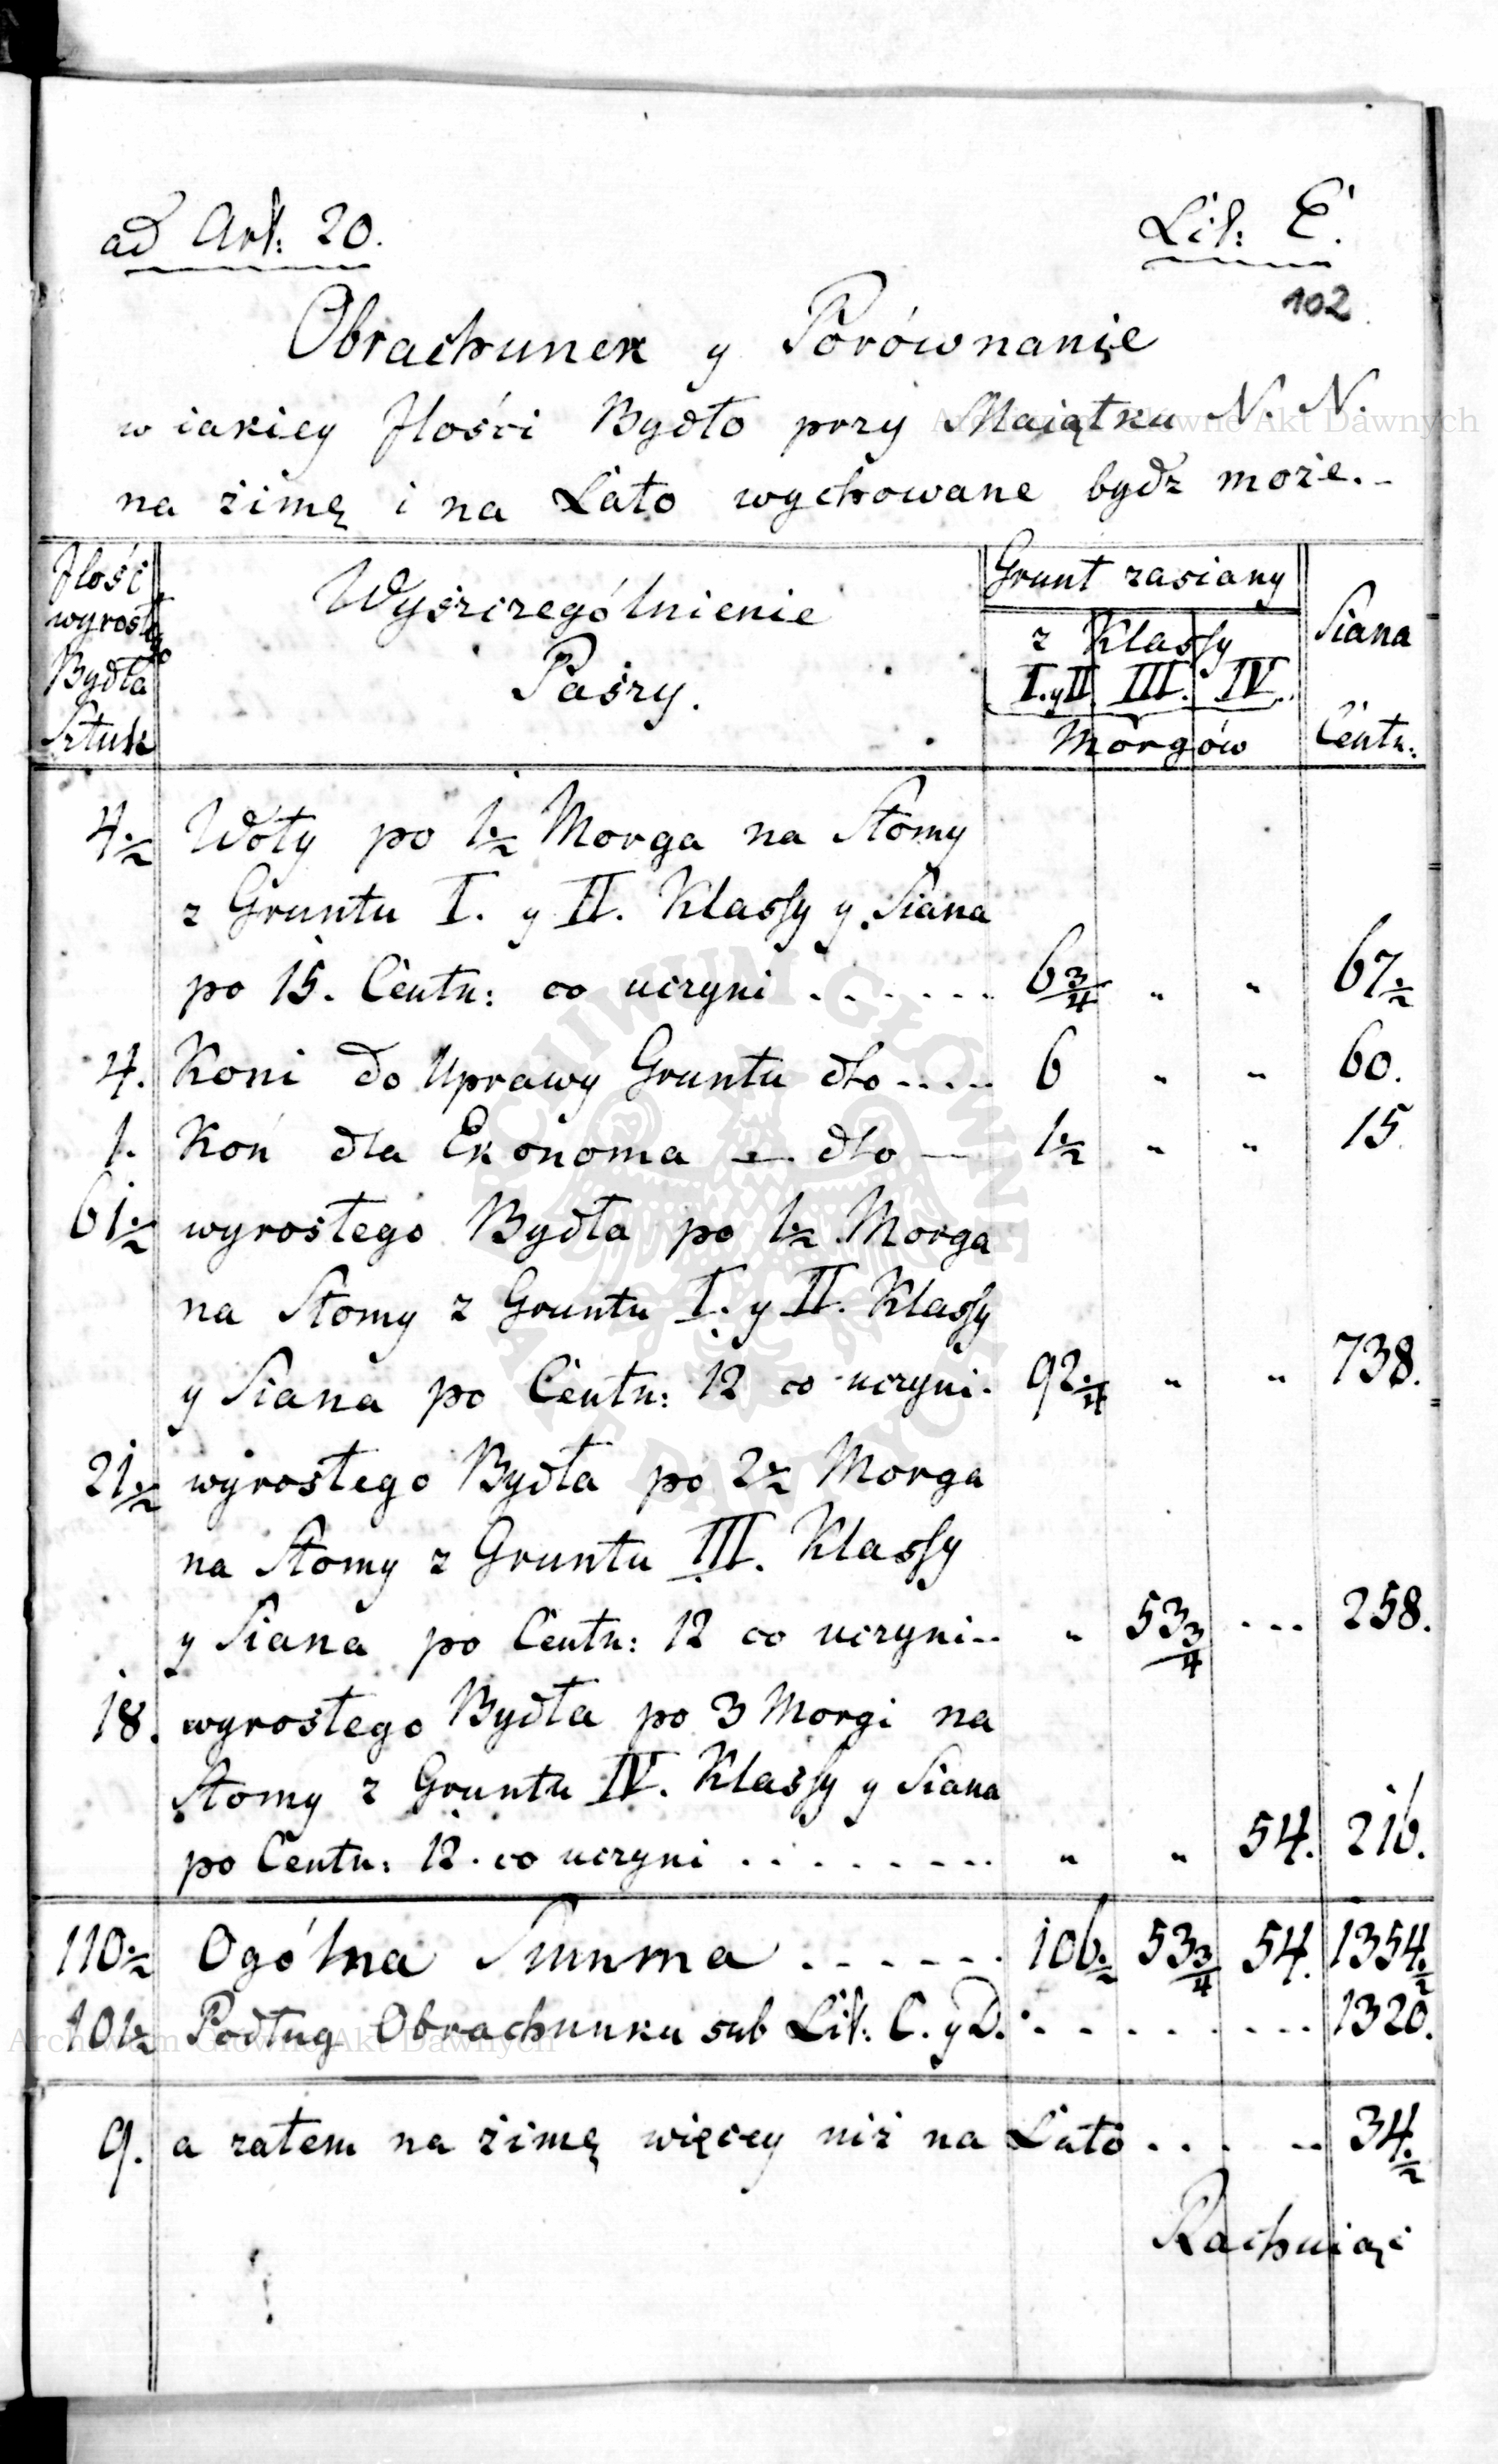 ad Art: 20.
Lit: E.
102
Obrachunek y Porównanie
w iakiey Jlości Bydło przy Maiątku N. N.
na zimę i na Lato wychowane bydz może.-
Jlość wyrostego Bydła Sztuk
Wyszczególnienie
Paszy.
Grunt zasiany
z Klassy
I. y II. III. IV.
Morgów
Siana
Centn:
4 1/2 Woły po 1 1/2 Morga na Słomy
z Gruntu I. y II. Klassy y Siana
po 15. Centn: co uczyni . . . . . . 6 3/4 " " 67 1/2
4. Koni do Uprawy Gruntu dto ..... 6 " " 60.
1. Koń dla Ekonoma — dto — 1 1/2 " " 15
61 1/2 wyrostego Bydła po 1 1/2 Morga
na Słomy z Gruntu I. y II. Klassy
y Siana po Centn: 12 co uczyni. 92 1/4 " " 738.
21 1/2 wyrostego Bydła po 2 1/2 Morga
na Słomy z Gruntu III. Klassy
y Siana po Centn: 12 co uczyni.. " 53 3/4 ... 258.
18. wyrostego Bydła po 3 Morgi na
Słomy z Gruntu IV. Klassy y Siana
po Centn: 12. co uczyni . . . . . . . . " " 54. 216.
110 1/2 Ogólna Summa . . . . . . 106 1/2 53 3/4 54. 1354 1/2
101 1/2 Podług Obrachunku sub Lit: C. y D. . . . . . . . . 1320.
9. a zatem na zimę więcey niż na Lato . . . .. 34 1/2
Rachuiąc
Archiwum Główne Akt Dawnych
ARCHIWUM GŁÓWNE AKT DAWNYCH
Archiwum Główne Akt Dawnych